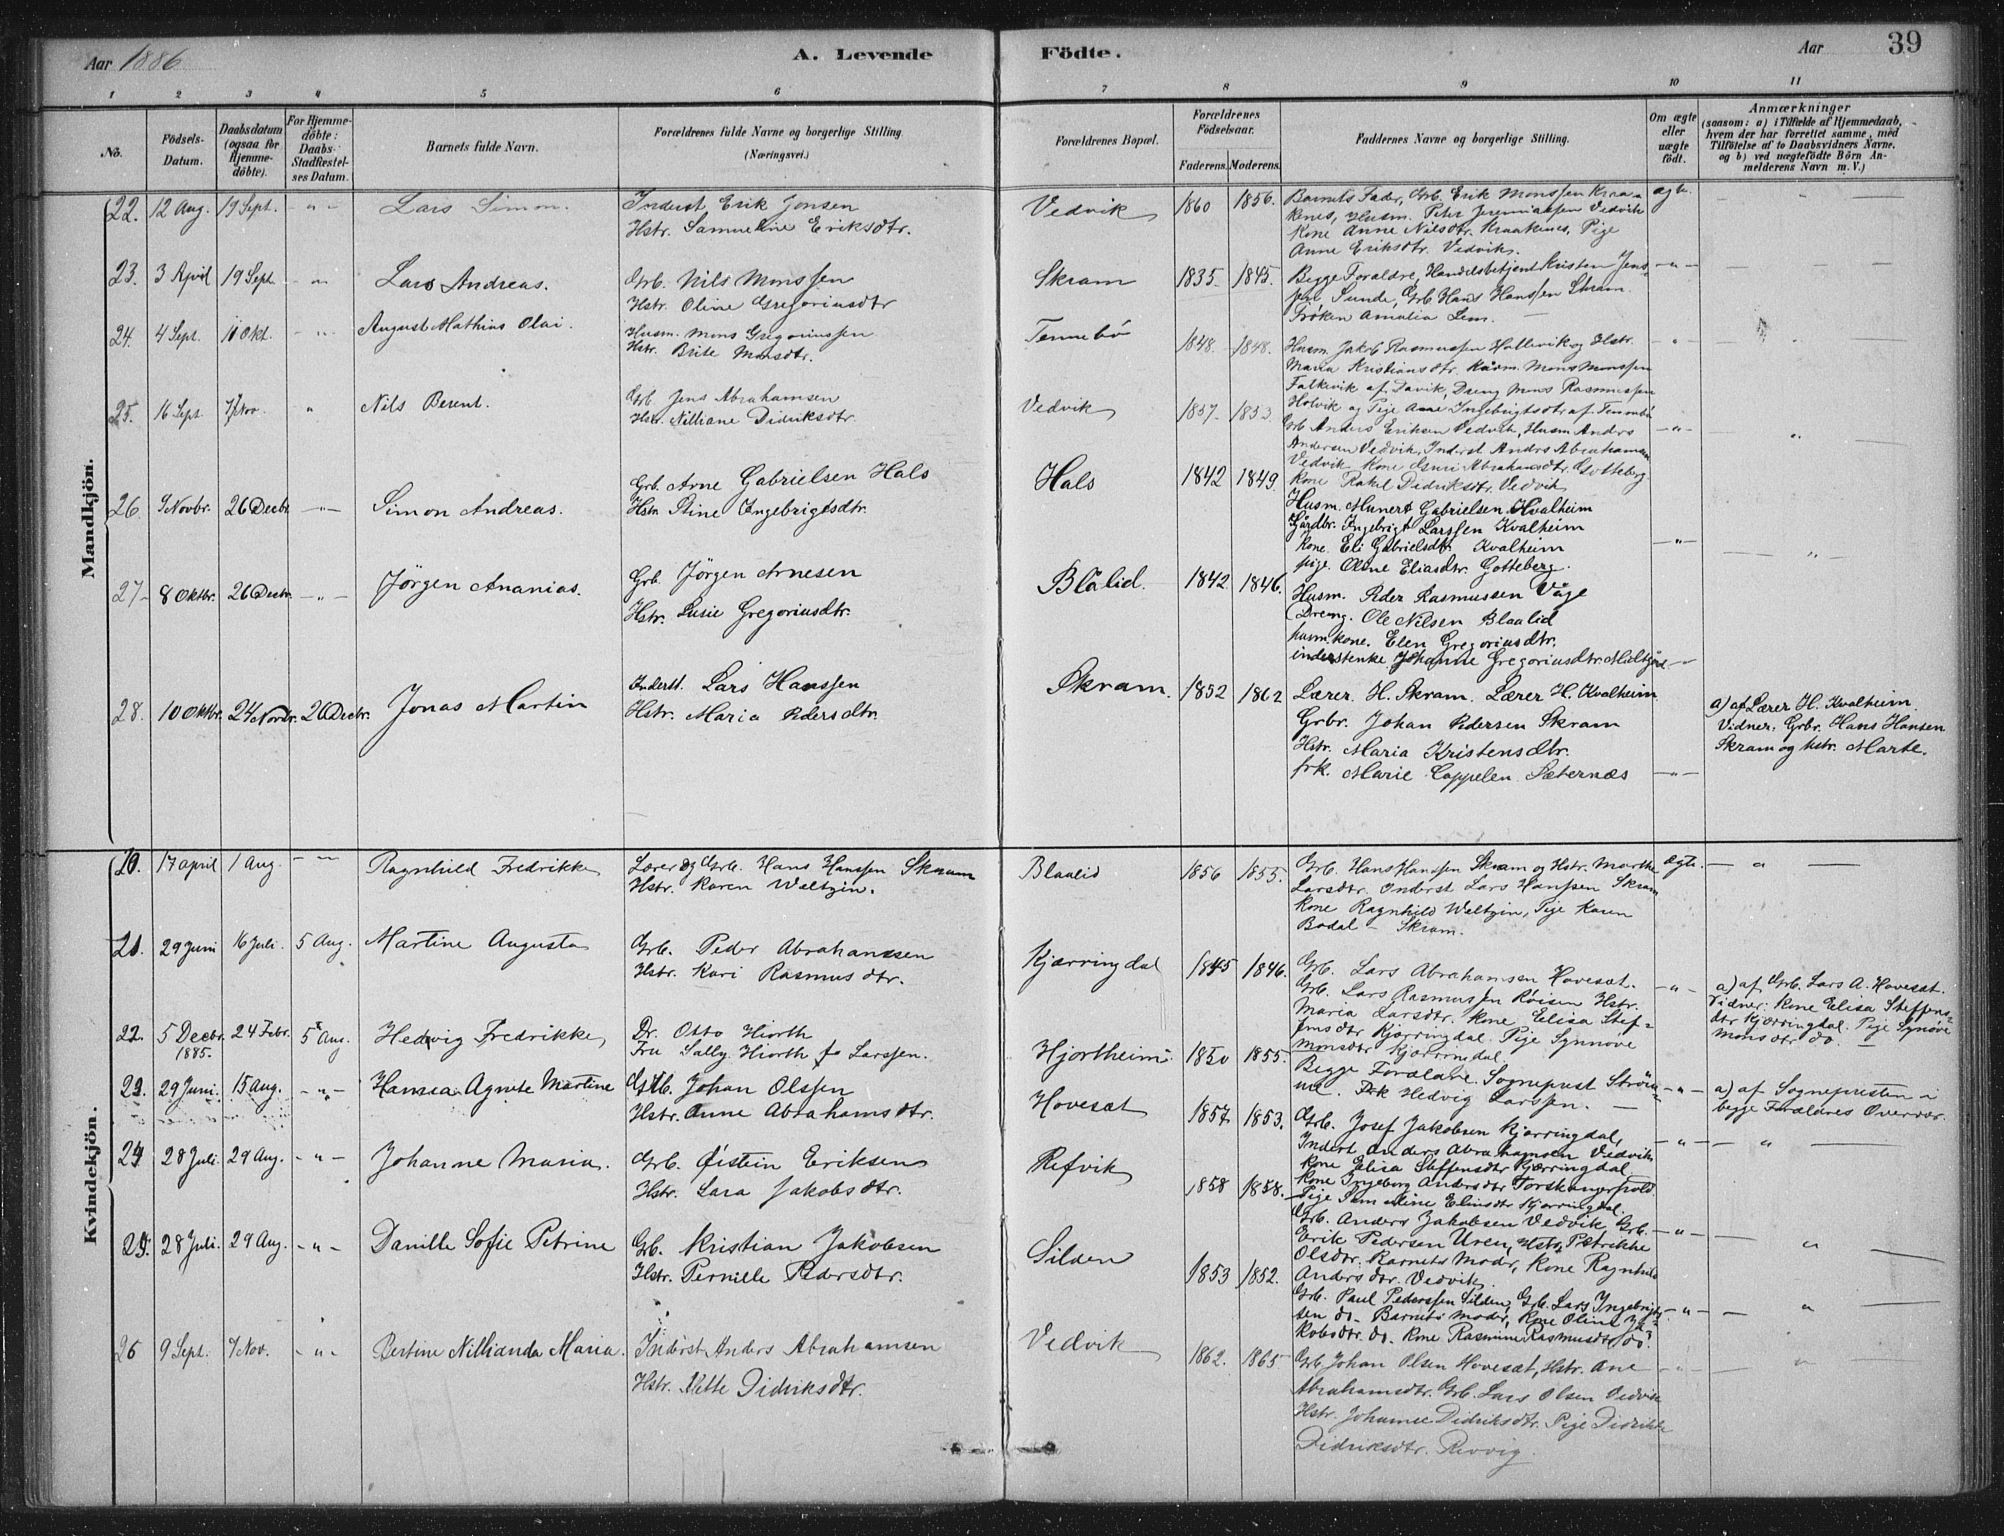 Aar 1886
A. Levende
Födte.
Aar
39
1 2 3 4 5 6 7 8 9 10 11
No.
Födsels-Datum.
Daabsdatum (ogsaa for Hjemmedöbte).
For Hjemmedöbte: Daabs-Stadfæstelses Datum.
Barnets fulde Navn.
Forældrenes fulde Navne og borgerlige Stilling.
(Næringsvei.)
Forældrenes Bopæl.
Forældrenes Födselsaar.
Faderens. Moderens.
Faddernes Navne og borgerlige Stilling.
Om ægte eller uægte födt.
Anmærkninger
(saasom: a) i Tilfælde af Hjemmedaab, hvem der har forrettet samme, med Tilföielse af to Daabsvidners Navne. og b) ved uægtefödte Börn Anmelderens Navn m. V.)
Mandkjön.
22. 12 Aug. 19 Sept. - " - Lars Simon.
Inderst Erik Jonsen
Hstr. Samueline Eriksdtr.
Vedvik 1860 1856.
Barnets Fader, Grb. Erik Monssen Kraa-
kenes, Husm. Peter Jeremiassen Vedvik
Kone Anne Nilsdtr. Kraakenes, Pige
Anne Eriksdtr. Vedvik.
ægte.
23. 3 April 19 Sept. - " - Lars Andreas.
Grb. Nils Monssen
Hstr. Oline Gregoriusdtr
Skram 1835. 1845.
Begge Foraldre, Handelsbetjent Kristen Jens-
sen Sunde, Grb Hans Hanssen Skram.
Fröken Amalia Lem.
- " -
24. 4 Sept. 10 Okt. - " - August Mathias Olai.
Husm. Mons Gregoriussen
Hstr. Brite Monsdtr.
Tennebö 1848. 1848.
Husm Jakob Rasmussen Hallevik og Hstr.
Maria Kristiansdtr. Husm. Mons Monssen
Falkevik af Davik, Dreng Mons Rasmussen
Holvik og Pige Anne Ingebrigtsdtr af Tennebö
- " -
25. 16 Sept. 7 Nov. " Nils Berent.
Grb. Jens Abrahamsen
Hstr. Nilliane Didriksdtr.
Vedvik 1857. 1853.
Grb Anders Eriksen Vedvik, Husm Anders
Andersen Vedvik, Inderst Anders Abrahamsen
Vedvik Kone Guri Abrahamsdtr. Gotteberg
Kone Rakel Didriksdtr. Vedvik
- " -
26 9 Novbr. 26 Decbr. - " - Simon Andreas.
Grb. Arne Gabrielsen Hals
Hstr. Stine Ingebrigtsdtr.
Hals 1842 1849.
Husm. Munert Gabrielsen. Kvalheim
Gårdbr. Ingebrigt Larssen Kvalheim
Kone. Eli Gabrielsdtr. Kvalheim
pige. Oline Eliasdtr. Gotteberg.
- " -
27- 8 Oktbr. 26 Decbr. - " - Jörgen Ananias.
Grb. Jörgen Arnesen
Hstr. Lusie Gregoriusdtr.
Blålid. 1842 1846.
Husm. Peder Rasmussen Våge
Dreng. Ole Nilsen Blaalid
husm.kone. Elen Gregoriusdtr.
inderstenke. Johanne Gregoriusdtr.
- " -
28. 10 Oktbr. 24 Novbr. 26 Decbr. Jonas Martin
Inderst. Lars Hanssen
Hstr. Maria Pedersdtr.
Skram. 1852 1862
Lærer H. Skram. Lærer H. Kvalheim
Grbr. Johan Pedersen Skram
Hstr. Maria Kristensdtr.
frk. Marie Cappelen. Sæternæs
- " -
a) af Lærer H. Kvalheim.
Vidner: Grbr. Hans Hansen
Skram og hstr. Marte.
Kvindekjön.
20. 17 April 1 Aug. - " - Ragnhild Fredrikke
Lærer og Grb. Hans Hanssen Skram
Hstr. Karen Weltzin.
Blaalid 1856 1855.
Grb. Hans Hanssen Skram og Hstr. Marthe
Larsdtr. Inderst Lars Hanssen Skram
Kone Ragnhild Weltzin, Pige Karen
Bodal - Skram.
ægte.
21. 29 Juni 16 Juli. 5 Aug. Martine Augusta
Grb. Peder Abrahamsen
Hstr. Kari Rasmusdtr.
Kjærringdal 1845 1846.
Grb. Lars Abrahamsen Hovesat.
Grb. Lars Rasmussen Röisen Hstr.
Maria Larsdtr. Kone Elisa Stef-
fensdtr Kjørringdal. Pige Synnöve
Monsdtr Kjærringdal.
- " -
a) af Grb. Lars A. Hovesat.
Vidner: Kone Elisa Steffens-
dtr Kjærringdal. Pige Synöve
Monsdtr do.
22. 5 Decbr. 1885. 24 Febr. 5 Aug. Hedvig Fredrikke
Dr. Otto Hiorth
Fru Sally Hiorth f. Larssen.
Hjortheim 1850 1855.
Begge Forældre. Sognepræst Ström-
me. Frk Hedvig Larssen.
- " -
a) af Sognepresten i
begge Forældres Overvær.
23. 29 Juni. 15 Aug. - " - Hansea Agnete Martine
Grb. Johan Olssen
Hstr. Anne Abrahamsdtr.
Hovesæt 1857. 1853.
Grb. Josef Jakobsen Kjærringdal,
Inderst Anders Abrahamsen Vedvik
Kone Elisa Steffensdtr Kjærringdal
Kone Ingeborg Andersdtr
Pige Samueline Eliasdtr Kjærringdal.
- " -
24. 28 Juli. 29 Aug. - " - Johanne Maria.
Grb. Øistein Eriksen
Hstr. Lara Jakobsdtr.
Refvik 1858 1858.
Grb. Anders Jakobsen Vedvik, Grb.
Erik Pedersen Uren, Hstr. Petrikke
Olsdtr. Barnets Moder, Kone Ragnhild
Andersdtr. Vedvik.
- " -
25. 28 Juli. 29 Aug. - " - Danille Sofie Petrine
Grb. Kristian Jakobsen
Hstr. Pernille Pedersdtr.
Silden 1853 1852.
Grb. Paul Pederssen Silden, Grb. Lars Ingebrigt-
sen do. Barnets Moder, Kone Oline Ja-
kobsdtr. do. Kone Rasmine Rasmusdtr do.
- " -
26 9 Sept. 7 Nov. - " - Bertine Nillianda Maria.
Inderst Anders Abrahamsen
Hstr. Mette Didriksdtr.
Vedvik 1862. 1865
Grb. Johan Olsen Hovesæt, Hstr. Ane
Abrahamsdtr. Grb. Lars Olsen Vedvik
Hstr. Johanne Didriksdtr. Pige Didrikke
Didriksdtr. Revvig.